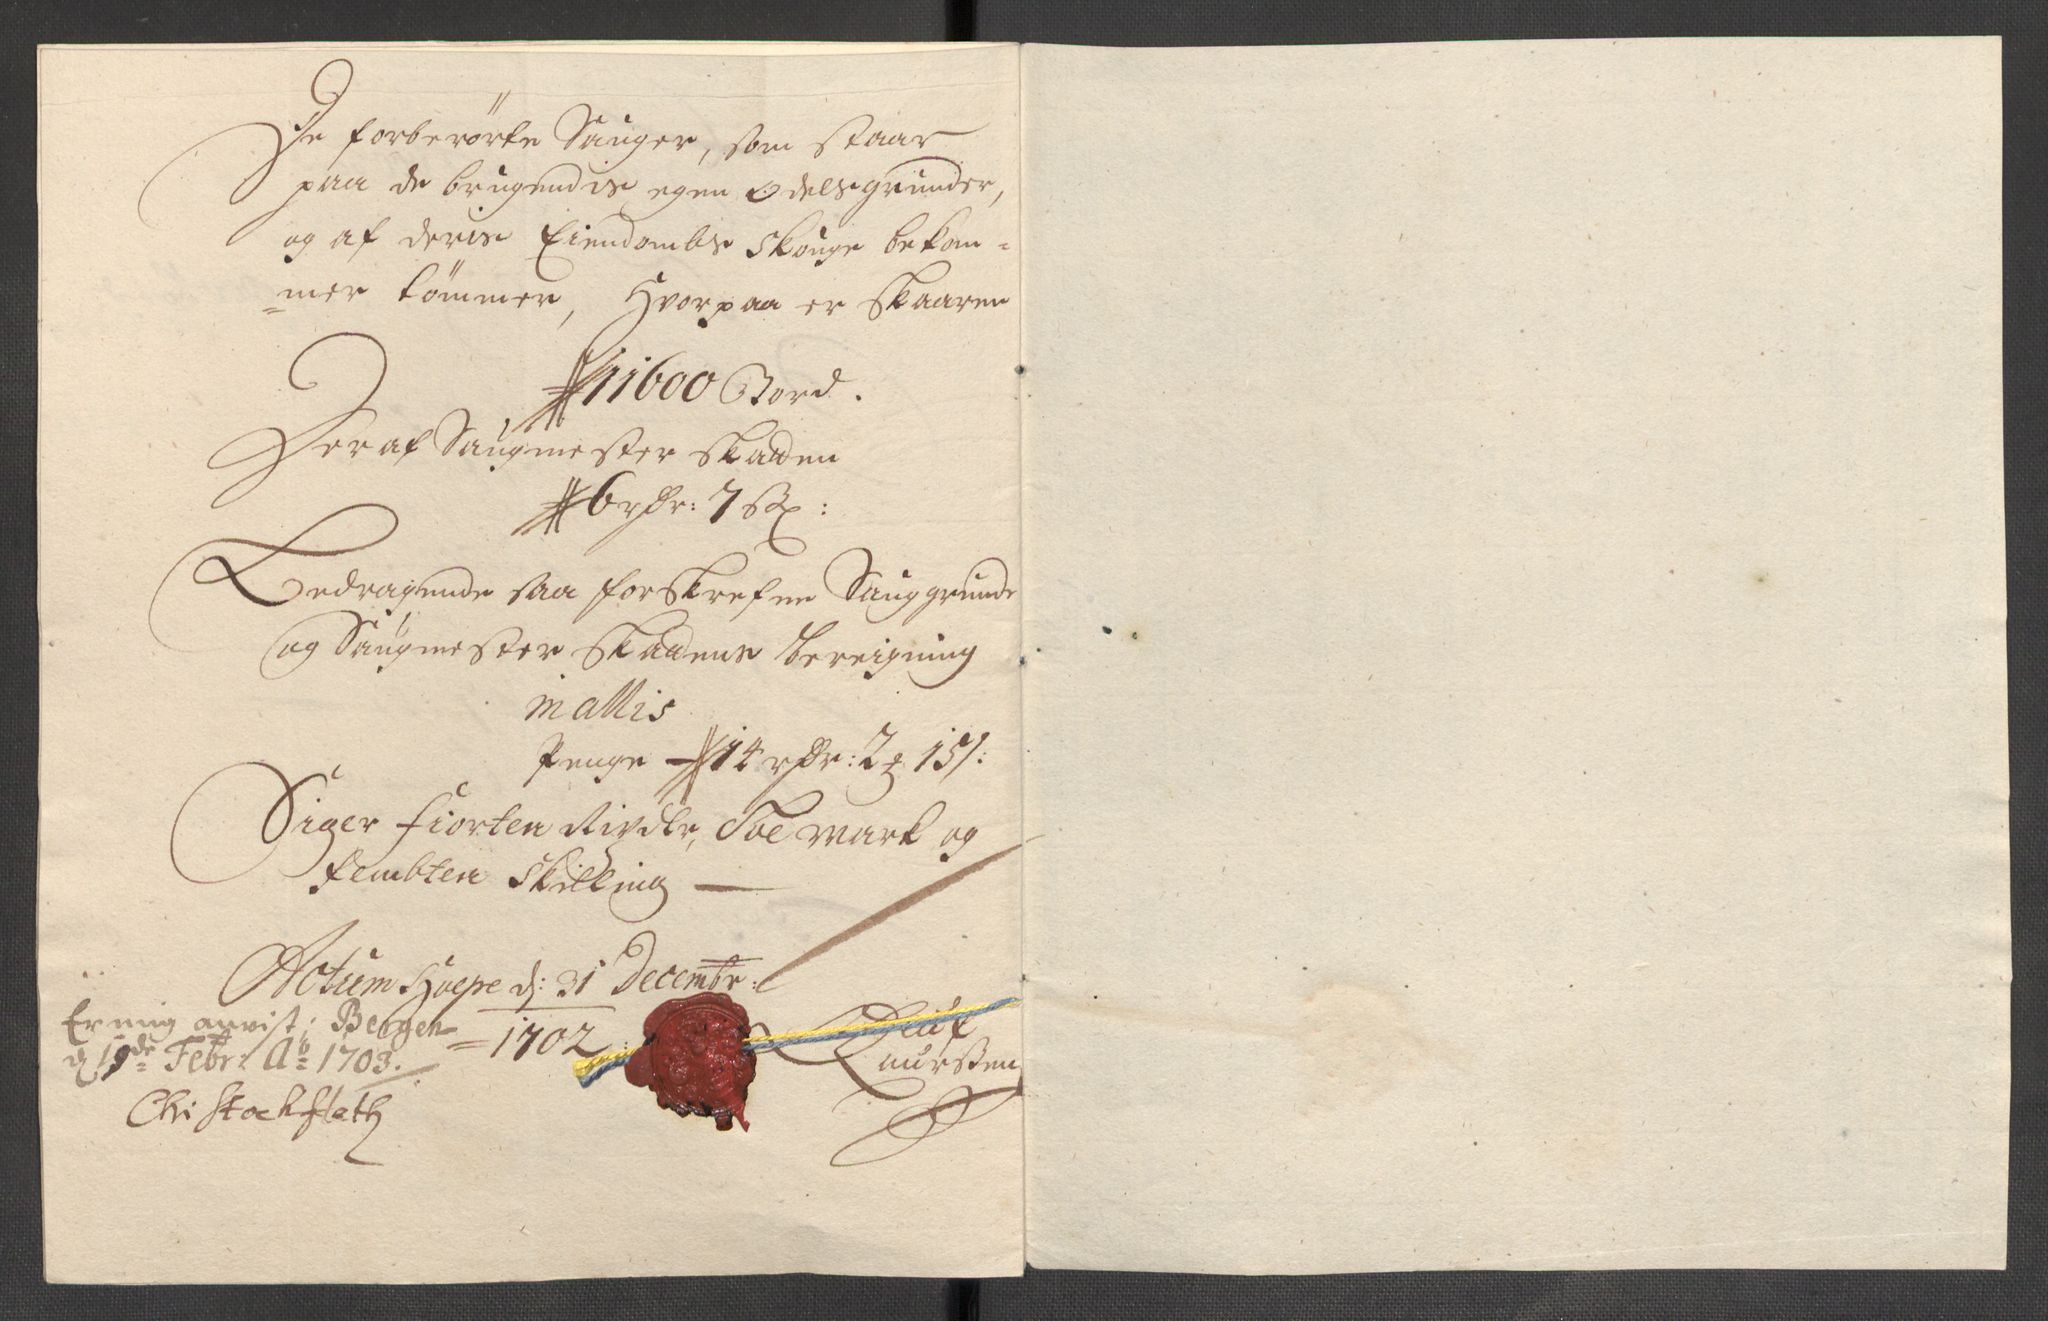 De forberörte Sauger, som staar
paa de brugendis egen Odelsgrunder,
og af deris Eiendombs Skouge bekom-
=mer tömmer, Hvorpaa er Skaaren
11600 Bord.
Deraf Saugmester Skatten
6 rdr: 7 sk:
Bedragende saa forskrefne Sauggrunde
og Saugmester Skattens bereigning
in allis
Penge 14 rdr: 2 15/:
Siger fiorten Rixdlr, Toe mark og
fembten Skilling
Actum Hoepe d: 31 Decembr:
Er mig anvist i Bergen
=1702
d 19de Febr: Ao 1703.
Oluf
Laurssen
Chr Stockfleth